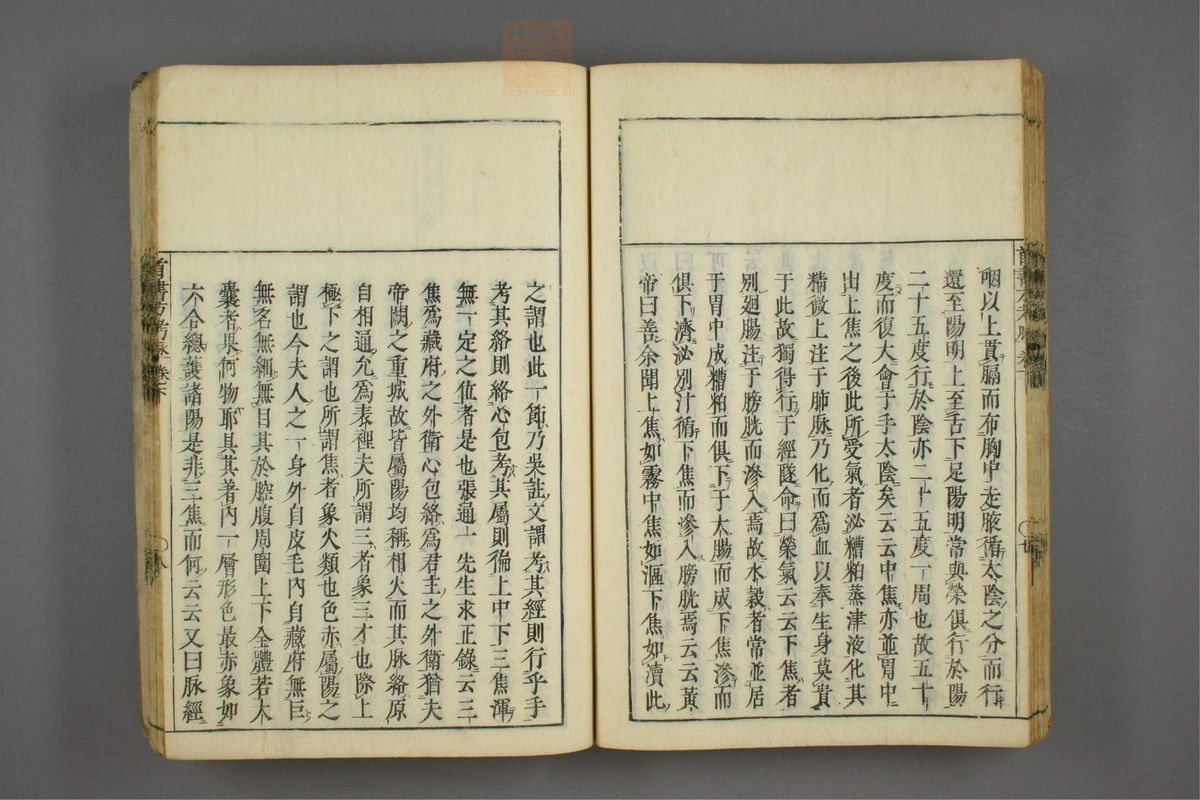 咽以上貫膈而布胸中走腋循太陰之分而行
還至陽明上至舌下足陽明常與榮俱行於陽
二十五度行於陰亦二十五度一周也故五十
度而復大會于手太陰矣云云中焦亦並胃中
出上焦之後此所受氣者泌糟粕蒸津液化其
精微上注于肺脉乃化而爲血以奉生身莫貴
于此故獨得行于經隧命曰榮氣云云下焦者
別廻腸注于膀胱而滲入焉故水穀者常並居
于胃中成糟粕而俱下于大腸而成下焦滲而
俱下濟泌別汁循下焦而滲入膀胱焉云云黃
帝曰善余聞上焦如霧中焦如漚下焦如瀆此
之謂也此一節乃吳註文謂考其經則行乎手
考其絡則絡心包考其屬則徧上中下三焦渾
無一定之位者是也張通一先生求正錄云三
焦爲藏府之外衛心包絡爲君主之外衛猶夫
帝闕之重城故皆屬陽均稱相火而其脉絡原
自相通允爲表裡夫所謂三者象三才也際上
極下之謂也所謂焦者象火類也色赤屬陽之
謂也今夫人之一身外自皮毛內自藏府無巨
無名無細無目其於腔腹周圍上下全體若大
囊者果何物耶且其著內一層形色最赤象如
六合總護諸陽是非三焦而何云云又曰脉經
首書方考脉 卷下
八